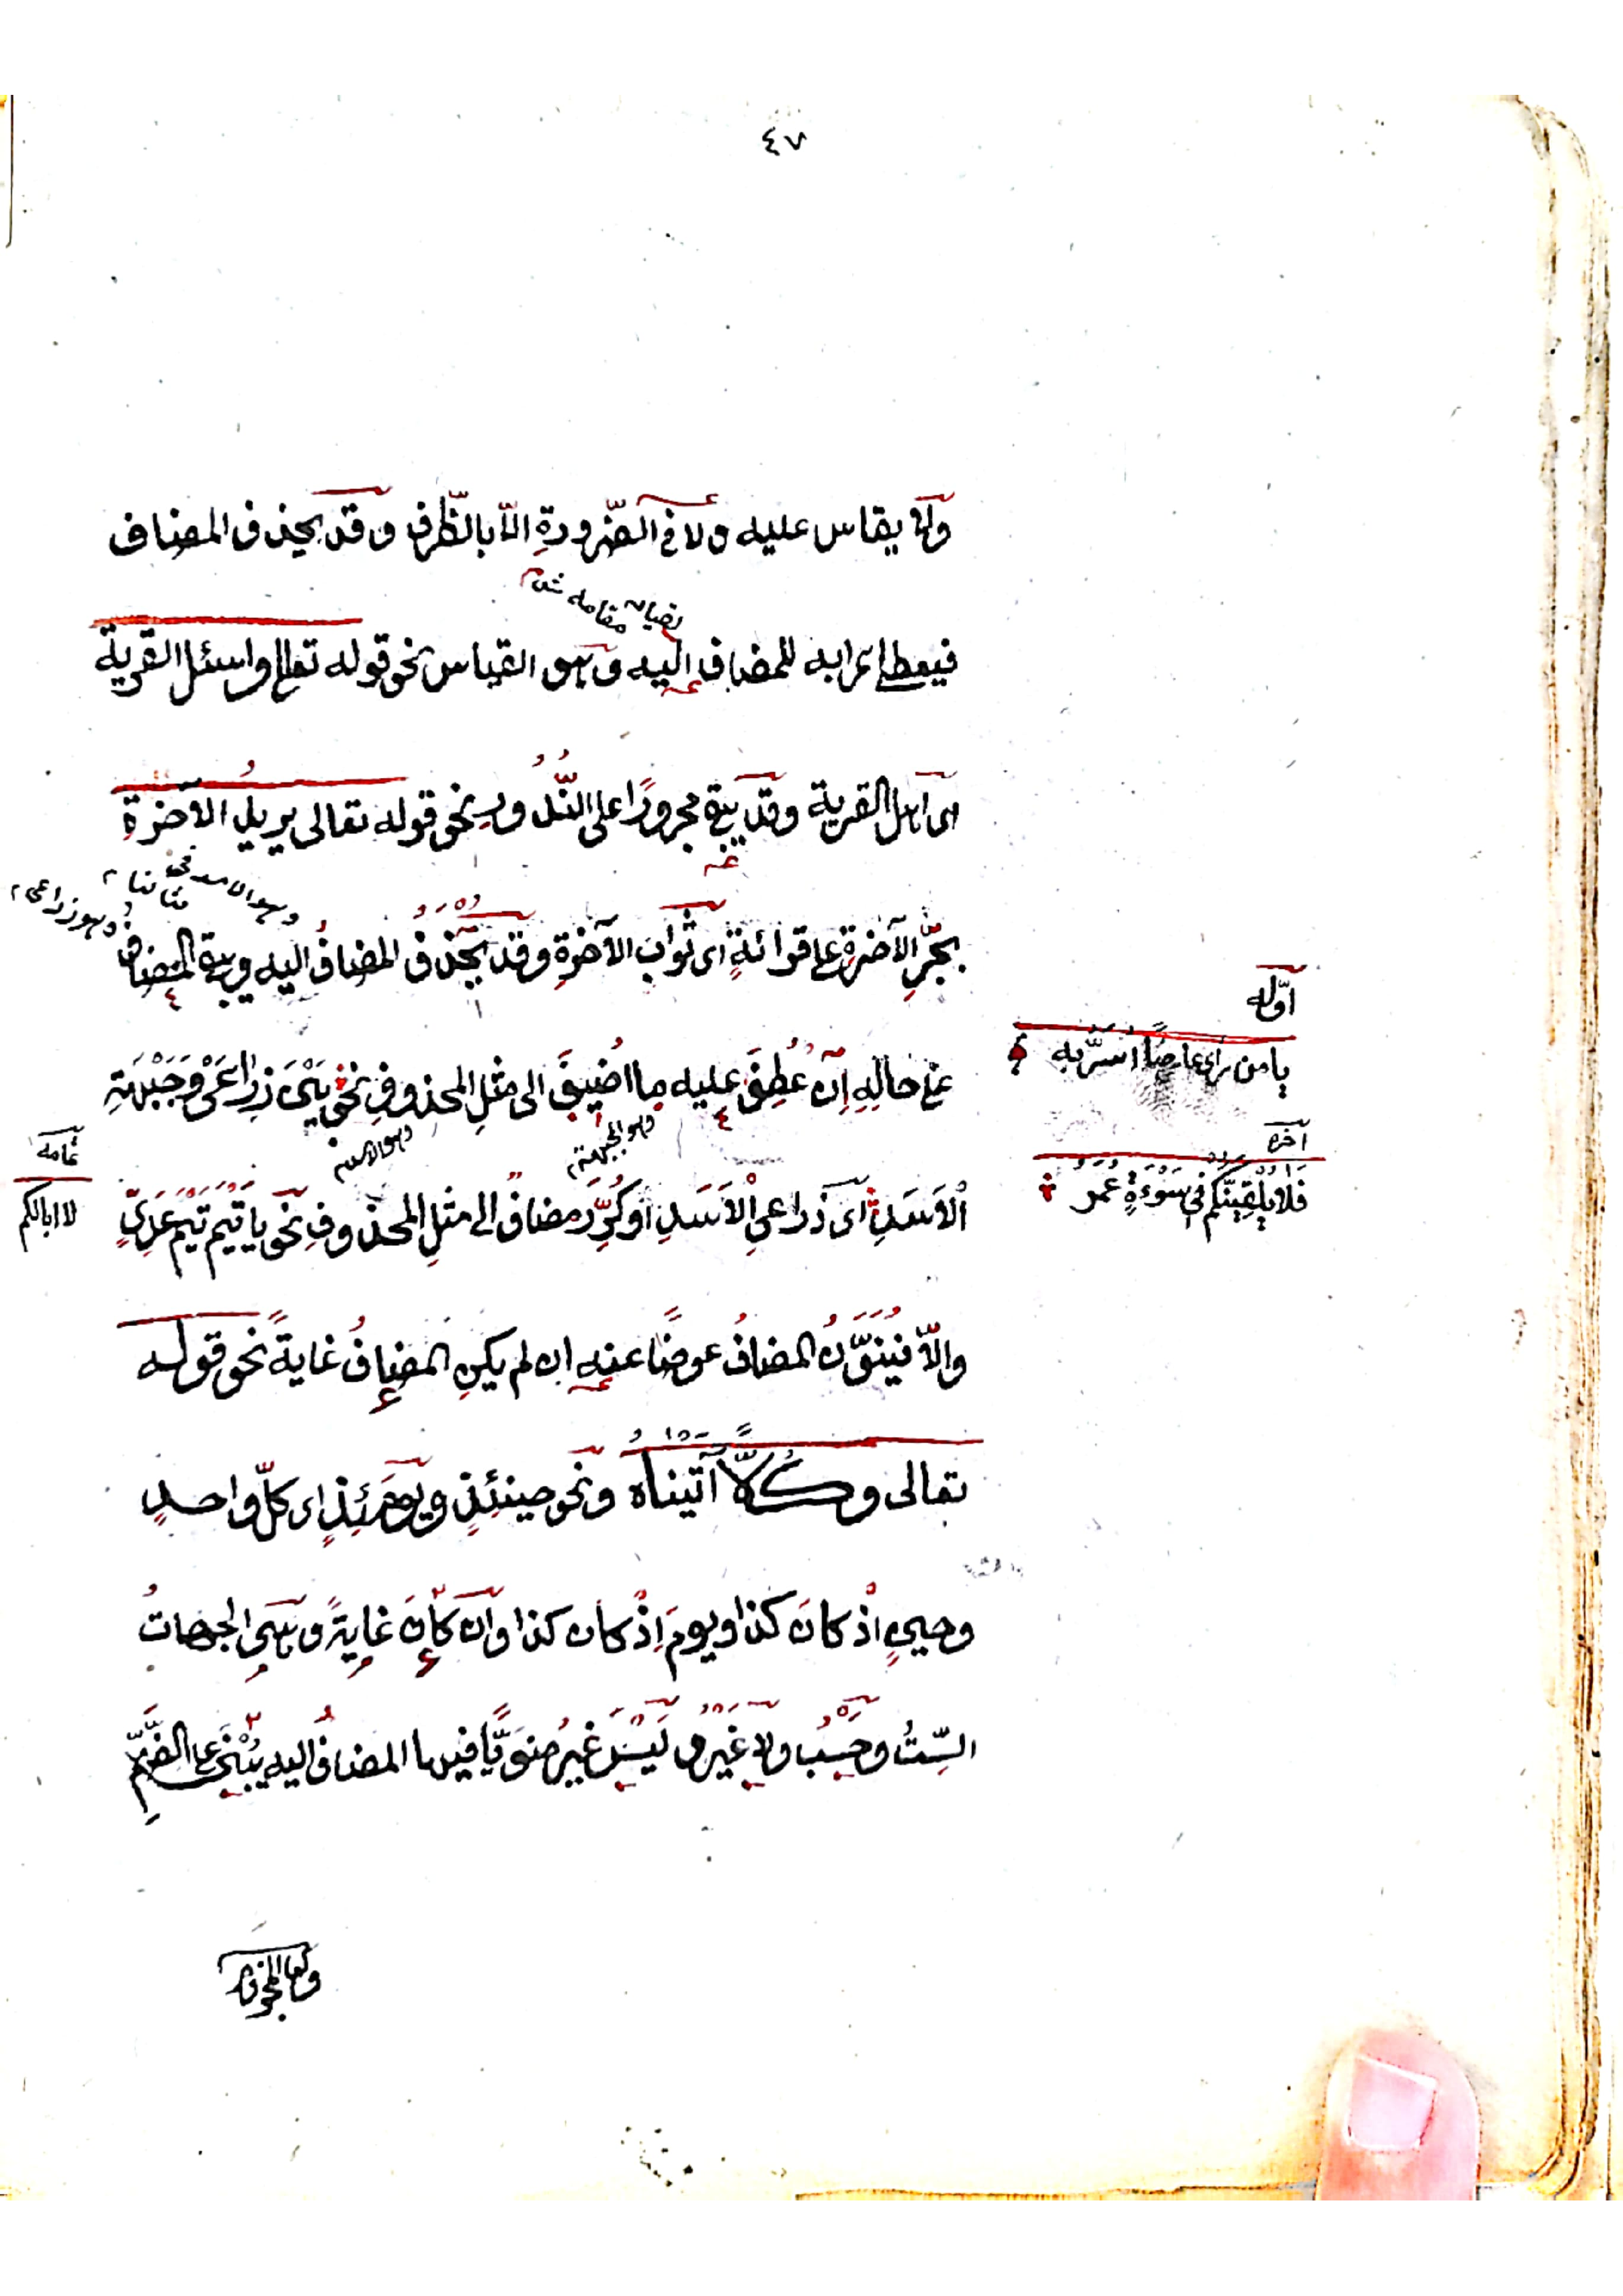 ٤٧
ولا يقاس عليه ولا فى الضّرورةِ الّا بالظّرف وقد يحذف المضاف
مقامه
فيعطى اعرابه للمضاف اليه وهو القياس نحو قوله تعالى واسئل القرية
اى اهل القرية وقد يبقى مجرورًا على النُّدُور نحو قوله تعالى يريدُ الآخرةِ
بجرِّ الآخرةِ على قرائةٍ اى ثوابَ الآخرةِ وقد يُحْذَفُ المضافُ اليه ويبقى المضاف
وهو ذراعى
على حالِهِ اِن عُطِفَ عليه ما اُضيفَ الى مثلِ المحذوفِ نحو بَيْنَ ذِراعَىْ وَجَبْهَةِ
وهو الجبهة
وهو الاسد
الْاَسَدِ اى ذراعىِ الْاَسَدِ او كُرِّرَ مضافٌ الى مثلِ المحذوفِ نحو يا تَيْمَ تَيْمَ عَدِىٍّ
والّا فيُنَوَّنُ المضافُ عوضًا عنه ان لم يكنِ المضافُ غايةً نحو قوله
تعالى وكُلًّا آتَيْنَاهُ ونحو حينئِذٍ ويَوْمَئِذٍ اى كلَّ واحدٍ
وحينِ اذْ كانَ كذا ويومَ اِذْ كان كذا وان كانَ غايةً وهىِ الجهاتُ
السِّتُّ وحَسْبُ ولا غَيْرُ ولَيْسَ غيرُ منوِيًّا فيها المضافُ اليه يُبْنَى على الضَّمِّ
اوّله
يا من رأى عارضًا اُسَرُّ به
آخره
فَلا يُلْقِيَنَّكُم فى سَوْءَةٍ عُمَرُ
تمامه
لا ابا لكم